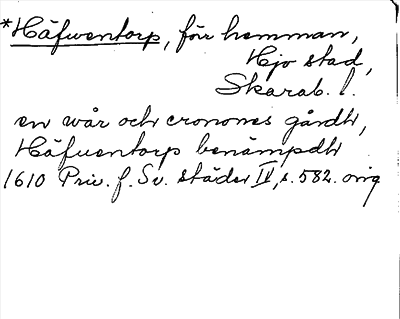 *Häfwentorp, förr hemman,
Hjo stad,
Skarab. l.
en wår och cronones gårdh,
Häfuentorp benämpdh
1610 Priv. f. Sv. städer IV, s. 582. orig